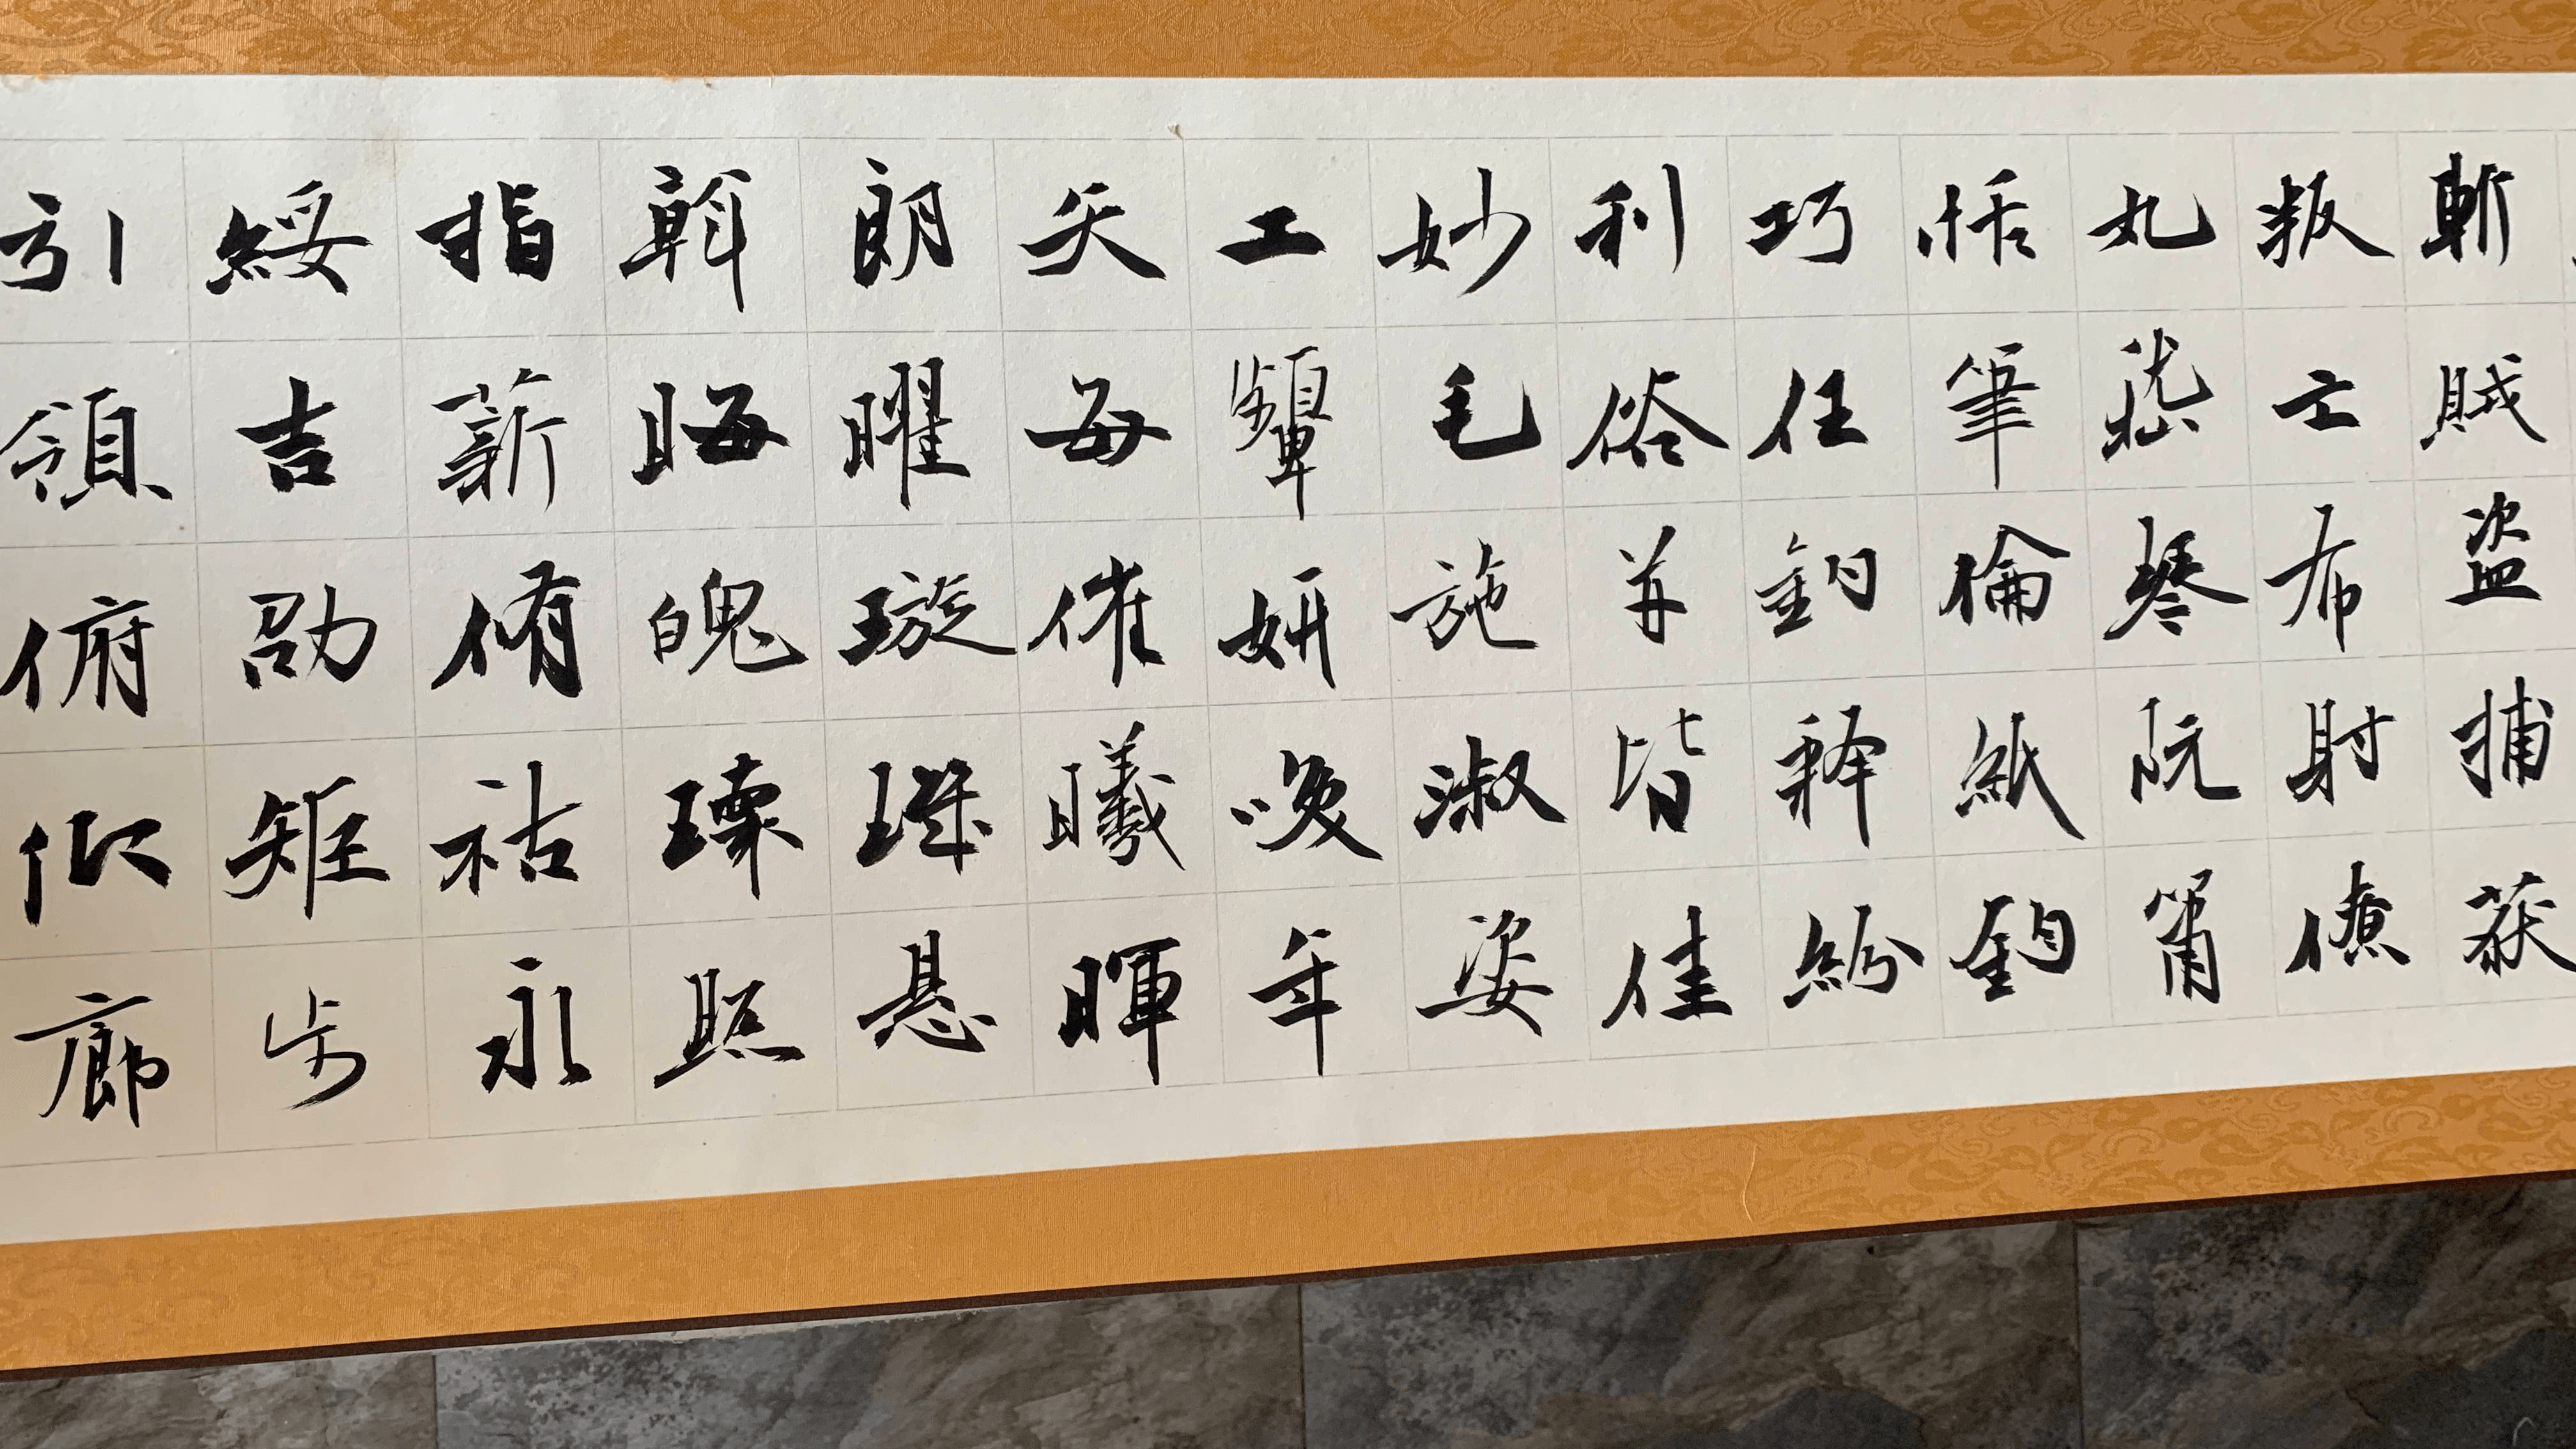 斬賊盗捕获
叛亡布射僚
丸嵇琴阮箫
恬筆倫紙鈞
巧任釣釋紛
利俗並皆佳
妙毛施淑姿
工顰妍咲年
矢每催曦暉
朗曜璇璣悬
斡晦魄環照
指薪脩祜永
綏吉劭矩步
引領俯仰廊